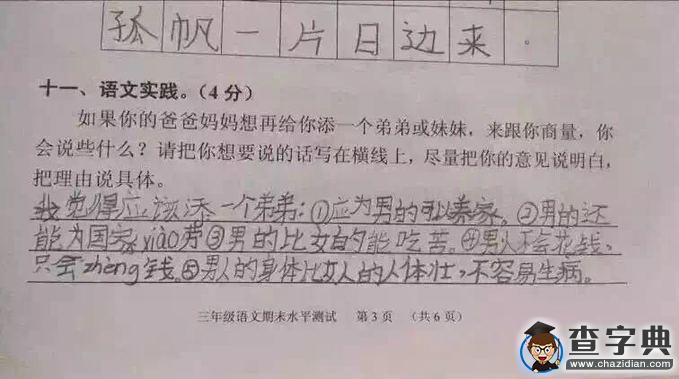 孤帆一片日边来。
十一、语文实践。(4分)
如果你的爸爸妈妈想再给你添一个弟弟或妹妹，来跟你商量，你
会说些什么？请把你想要说的话写在横线上，尽量把你的意见说明白，
把理由说具体。
我觉得应该添一个弟弟：①应为男的可以养家。②男的还
能为国家xiào劳③男的比女的能吃苦。④男人不会花钱，
只会zhèng钱。⑤男人的身体比女人的人体壮，不容易生病。
三年级语文期末水平测试 第3页 (共6页)
查字典
www.chazidian.com